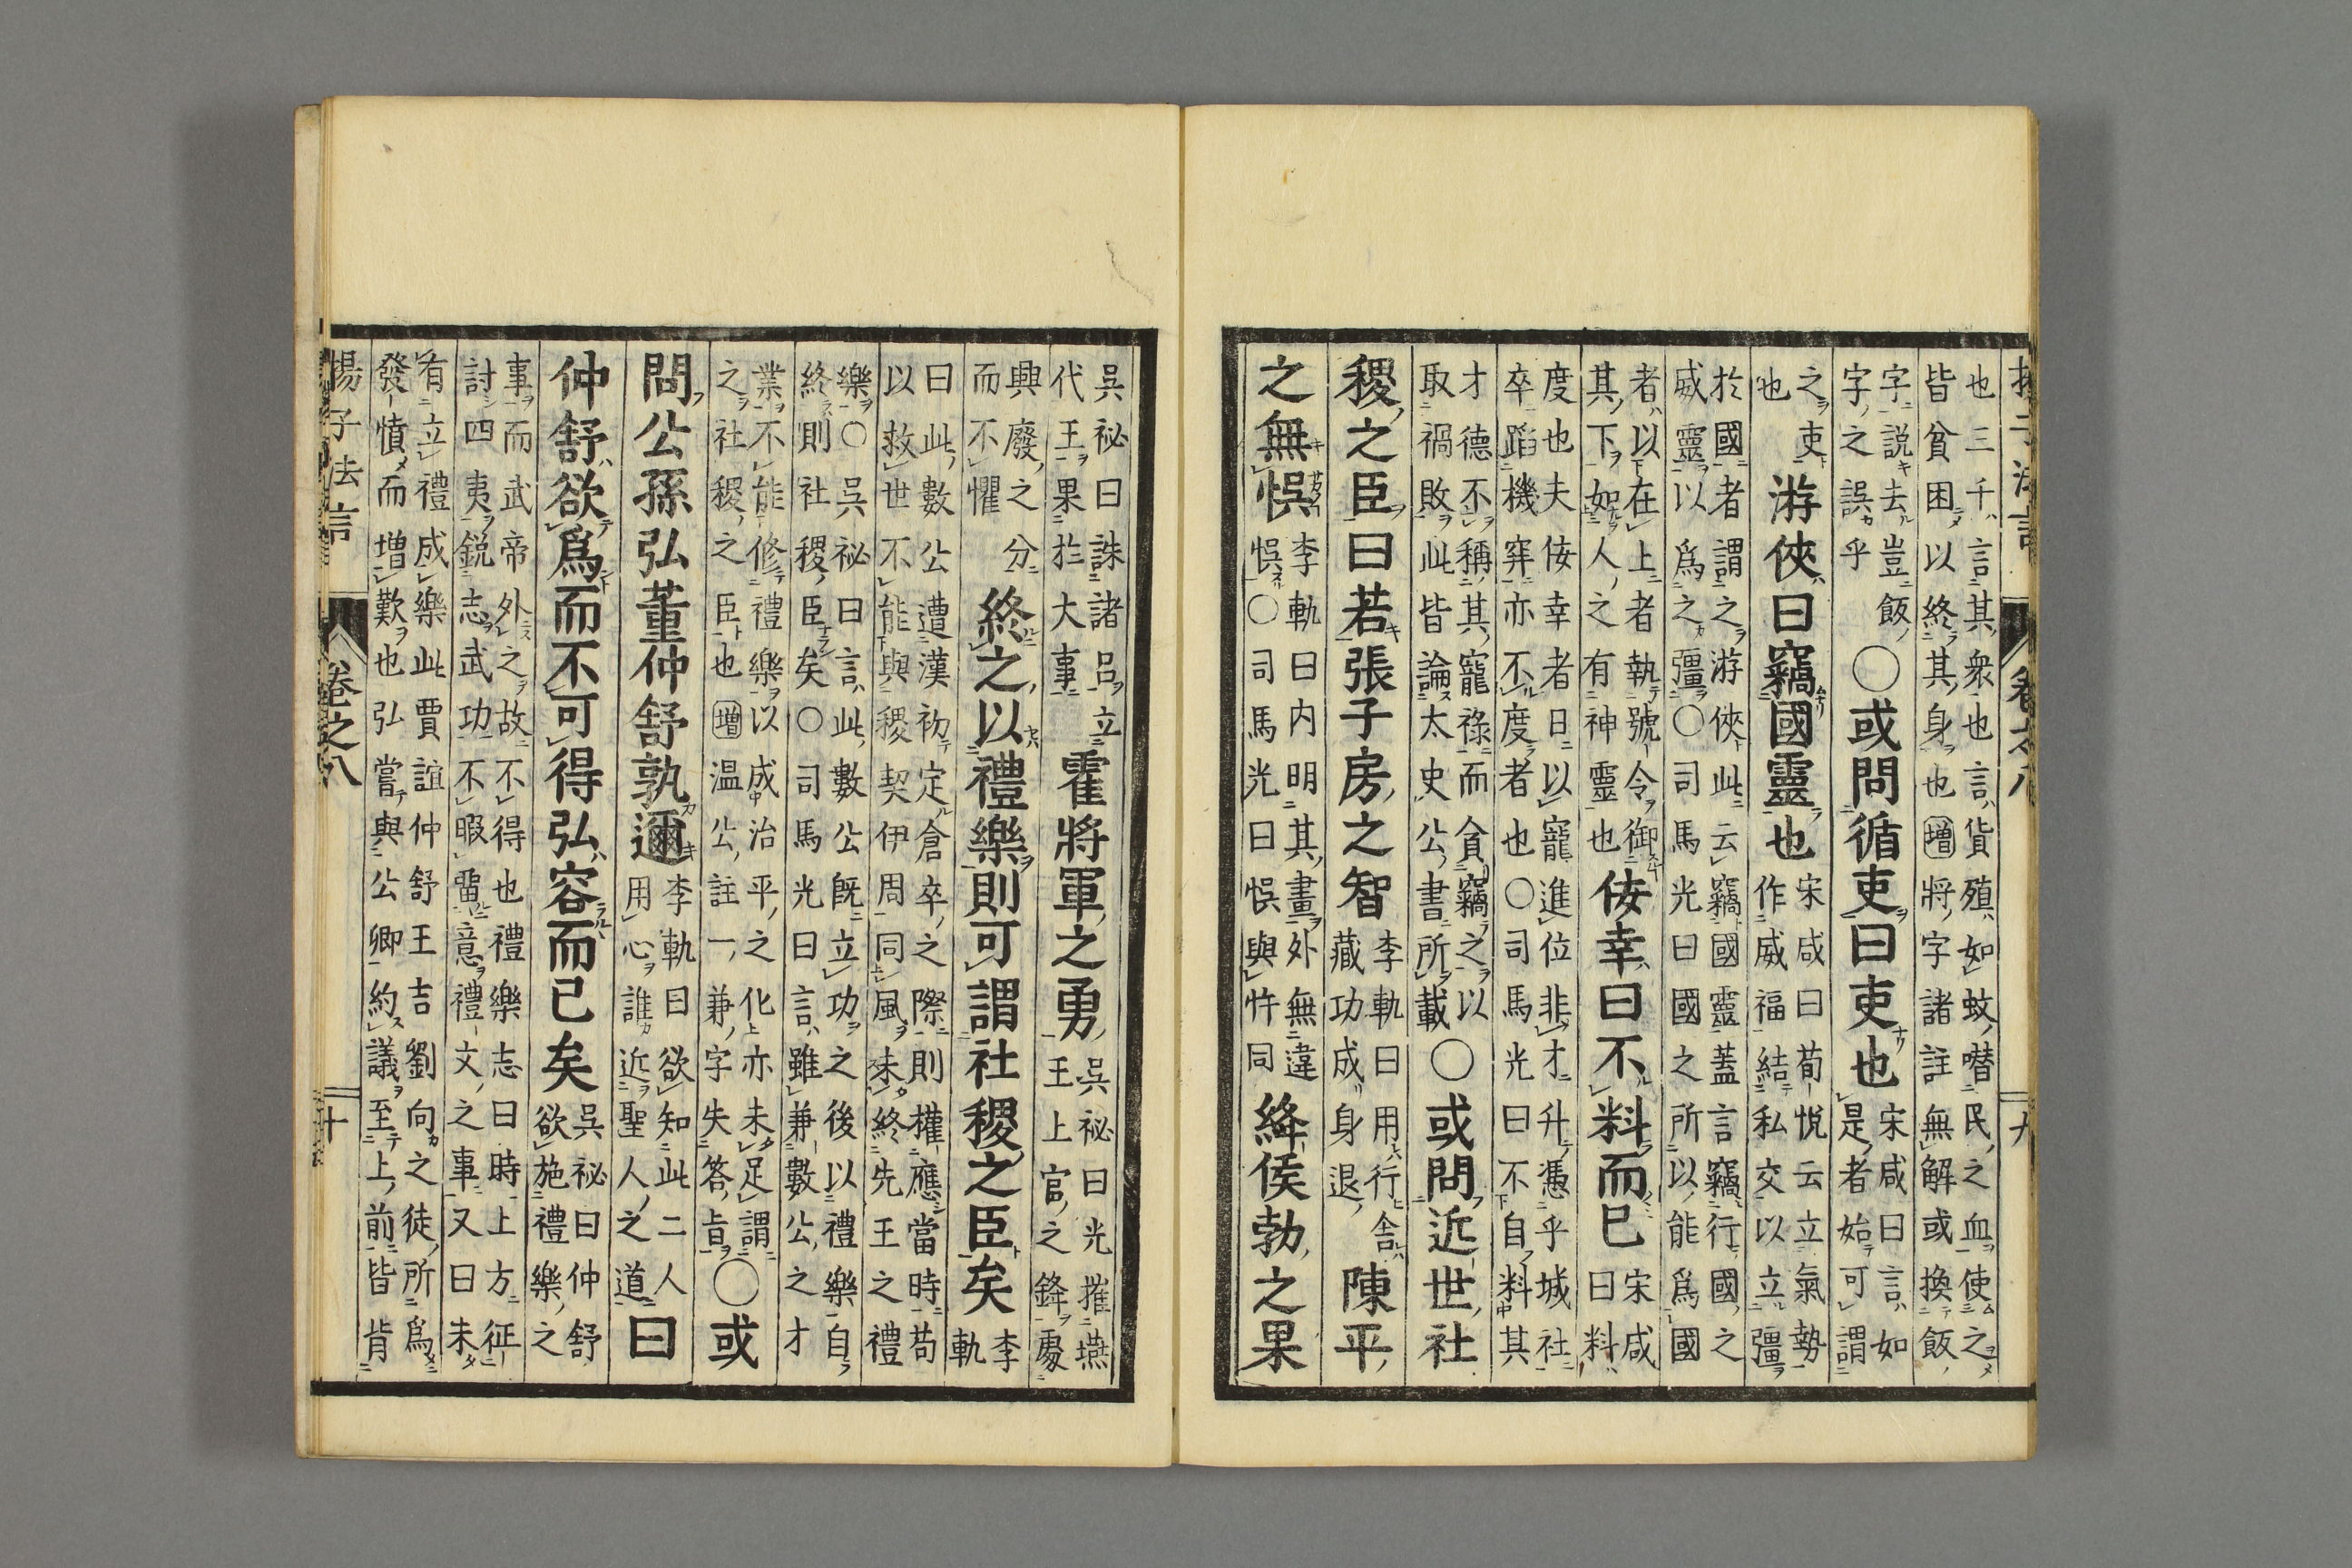 揚子法言　卷之八　九
也三千言其衆也言貨殖如蚊噆民之血使之
皆貧困以終其身也增將字諸註無解或換飯
字説去豈飯
字之誤乎
○或問循吏曰吏也
宋咸曰言如
是者始可謂
之吏
也
游俠曰竊國靈也
宋咸曰荀悅云立氣勢
作威福結私交以立彊
於國者謂之游俠此云竊國靈蓋言竊行國之
威靈以爲之彊○司馬光曰國之所以能爲國
者以在上者執號令御
其下如人之有神靈也
佞幸曰不料而已
宋咸
曰料
度也夫佞幸者日以寵進位非才升憑乎城社
卒蹈機穽亦不度者也○司馬光曰不自料其
才德不稱其寵祿而貪竊之以
取禍敗此皆論太史公書所載
○或問近世社
稷之臣曰若張子房之智
李軌曰用行舍
藏功成身退
陳平
之無悞
李軌曰内明其畫外無違
悞○司馬光曰悞與忤同
絳侯勃之果
吳祕曰誅諸呂立
代王果於大事
霍將軍之勇
吳祕曰光摧燕
王上官之鋒處
興廢之分
而不懼
終之以禮樂則可謂社稷之臣矣
李
軌
曰此數公遭漢初定倉卒之際則權應當時苟
以救世不能與稷契伊周同風未終先王之禮
樂○吳祕曰言此數公既立功之後以禮樂自
終則社稷臣矣○司馬光曰言雖兼數公之才
業不能修禮樂以成治平之化亦未足謂
之社稷之臣也增温公註一兼字失答旨
○或
問公孫弘董仲舒孰邇
李軌曰欲知此二人
用心誰近聖人之道
曰
仲舒欲爲而不可得弘容而已矣
吳祕曰仲舒
欲施禮樂之
事而武帝外之故不得也禮樂志曰時上方征
討四夷鋭志武功不暇留意禮文之事又曰未
有立禮成樂此賈誼仲舒王吉劉向之徒所爲
發憤而増歎也弘嘗與公卿約議至上前皆背
揚子法言　卷之八　十